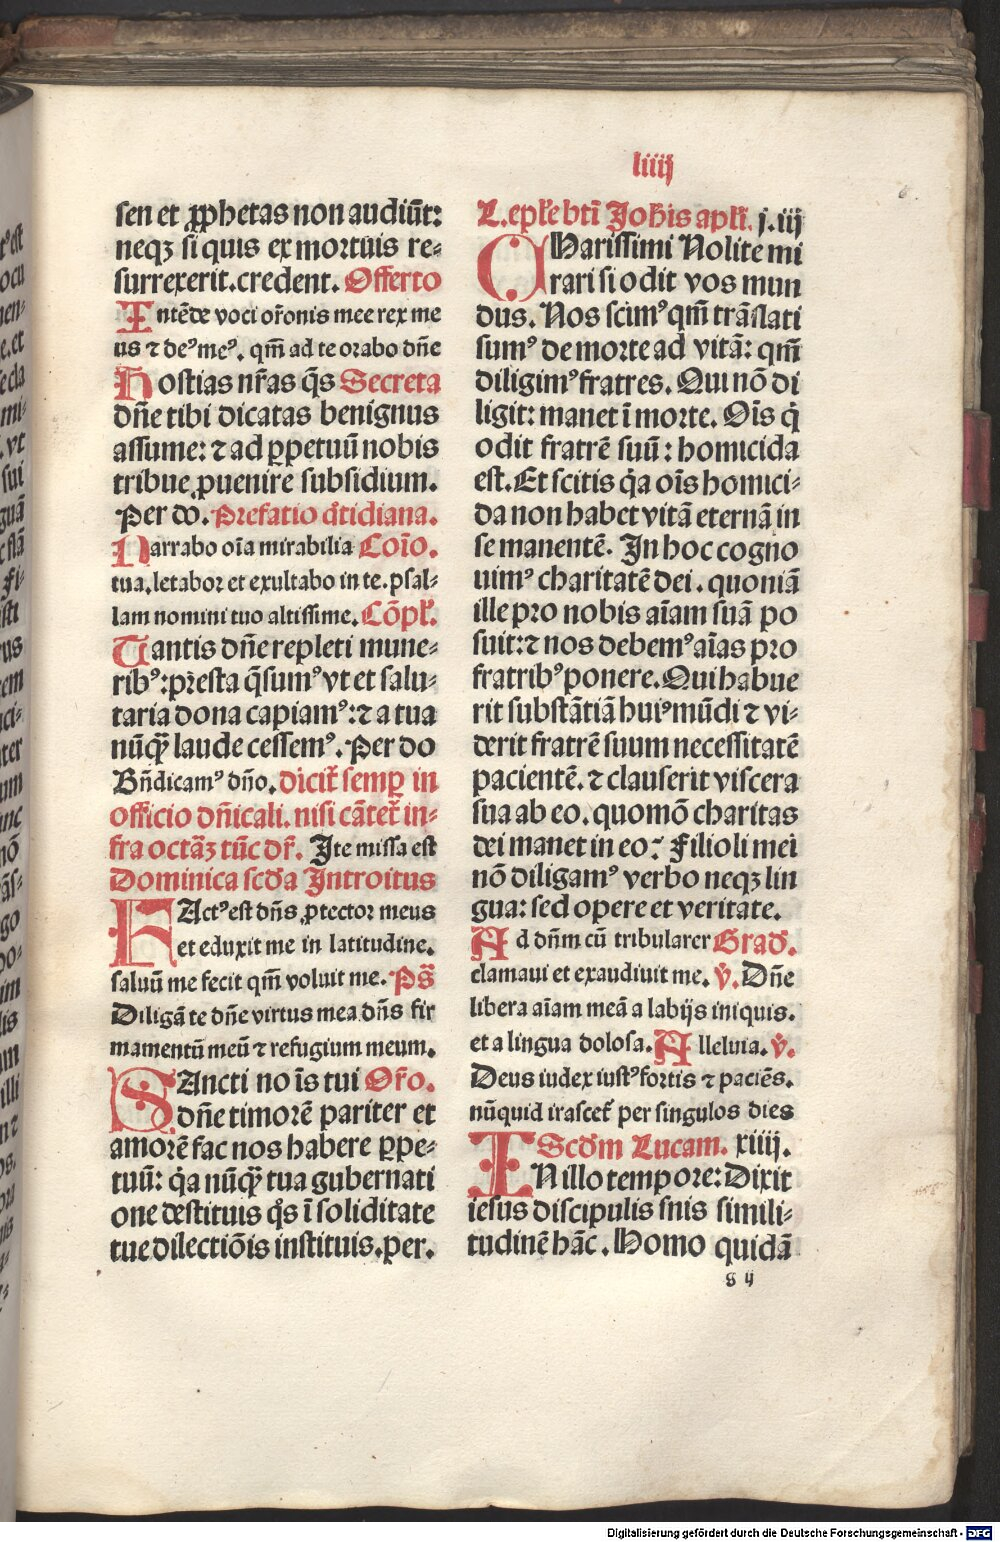 liiij
sen et ꝓphetas non audiūt:
neqꝫ si quis ex mortuis re-
surrexerit.credent. Offerto
Intēde voci orōnis mee rex me
us ⁊ deꝰ meꝰ. qm̄ ad te orabo dn̄e
Hostias nr̄as q̄s Secreta
dn̄e tibi dicatas benignus
assume: ⁊ ad ꝑpetuū nobis
tribue ꝓuenire subsidium.
Per do. Prefatio q̄tidiana.
Narrabo oīa mirabilia Coīo.
tua.letabor et exultabo in te.psal-
lam nomini tuo altissime. Cōpl̄.
Tantis dn̄e repleti mune-
ribꝰ:pr̄esta q̄sumꝰ vt et salu-
taria dona capiamꝰ: ⁊ a tua
nūqꝫ laude cessemꝰ. Per do
Bn̄dicamꝰ dn̄o. dicit̄ semꝑ in
officio dn̄icali. nisi cātet̄ in-
fra octāꝫ tūc dr̄. Ite missa est
Dominica scd̄a Introitus
FActꝰ est dn̄s ꝓtector meus
et eduxit me in latitudine.
saluū me fecit qm̄ voluit me. Ps̄
Diligā te dn̄e virtus mea.dn̄s fir
mamentū meū ⁊ refugium meum.
SAncti noīs tui Oro.
dn̄e timorē pariter et
amorē fac nos habere ꝑpe-
tuū: q̄a nūqꝫ tua gubernati
one destituis q̄s ī soliditate
tue dilectiōis instituis.per.
L. epl̄e bti Joh̄is apl̄i. j. iij
CHarissimi Nolite mi
rari si odit vos mun
dus. Nos scimꝰ qm̄ trāslati
sumꝰ de morte ad vitā: qm̄
diligimꝰ fratres. Qui nō di
ligit: manet ī morte. Oīs q̄
odit fratrē suū: homicida
est. Et scitis q̄a oīs homici-
da non habet vitā eternā in
se manentē. In hoc cogno
uimꝰ charitatē dei. quoniā
ille pro nobis aīam suā po
suit: ⁊ nos debemꝰ aīas pro
fratribꝰ ponere. Qui habue
rit substātiā huiꝰ mūdi ⁊ vi-
derit fratrē suum necessitatē
pacientē. ⁊ clauserit viscera
sua ab eo. quomō charitas
dei manet in eo: Filioli mei
nō diligamꝰ verbo neqꝫ lin
gua: sed opere et veritate.
Ad dn̄m cū tribularer Grad.
clamaui et exaudiuit me. v̄. Dn̄e
libera aīam meā a labijs iniquis.
et a lingua dolosa. Alleluia. v̄.
Deus iudex iustꝰ fortis ⁊ paciēs.
nūquid irascet̄ per singulos dies
Scd̄m Lucam. xiiij.
IN illo tempore: Dixit
iesus discipulis snis simili-
tudinē hāc. Homo quidā
g ij
Digitalisierung gefördert durch die Deutsche Forschungsgemeinschaft - DFG